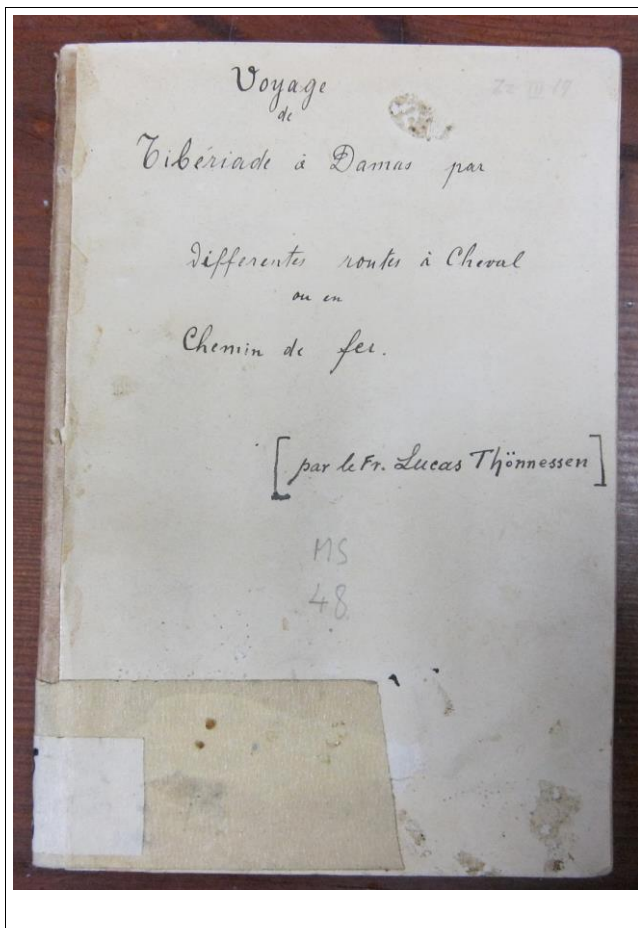 Voyage
de
Tibériade à Damas par
differentes routes à Cheval
ou en
Chemin de fer.
[par le Fr. Lucas Thönnessen]
MS
48